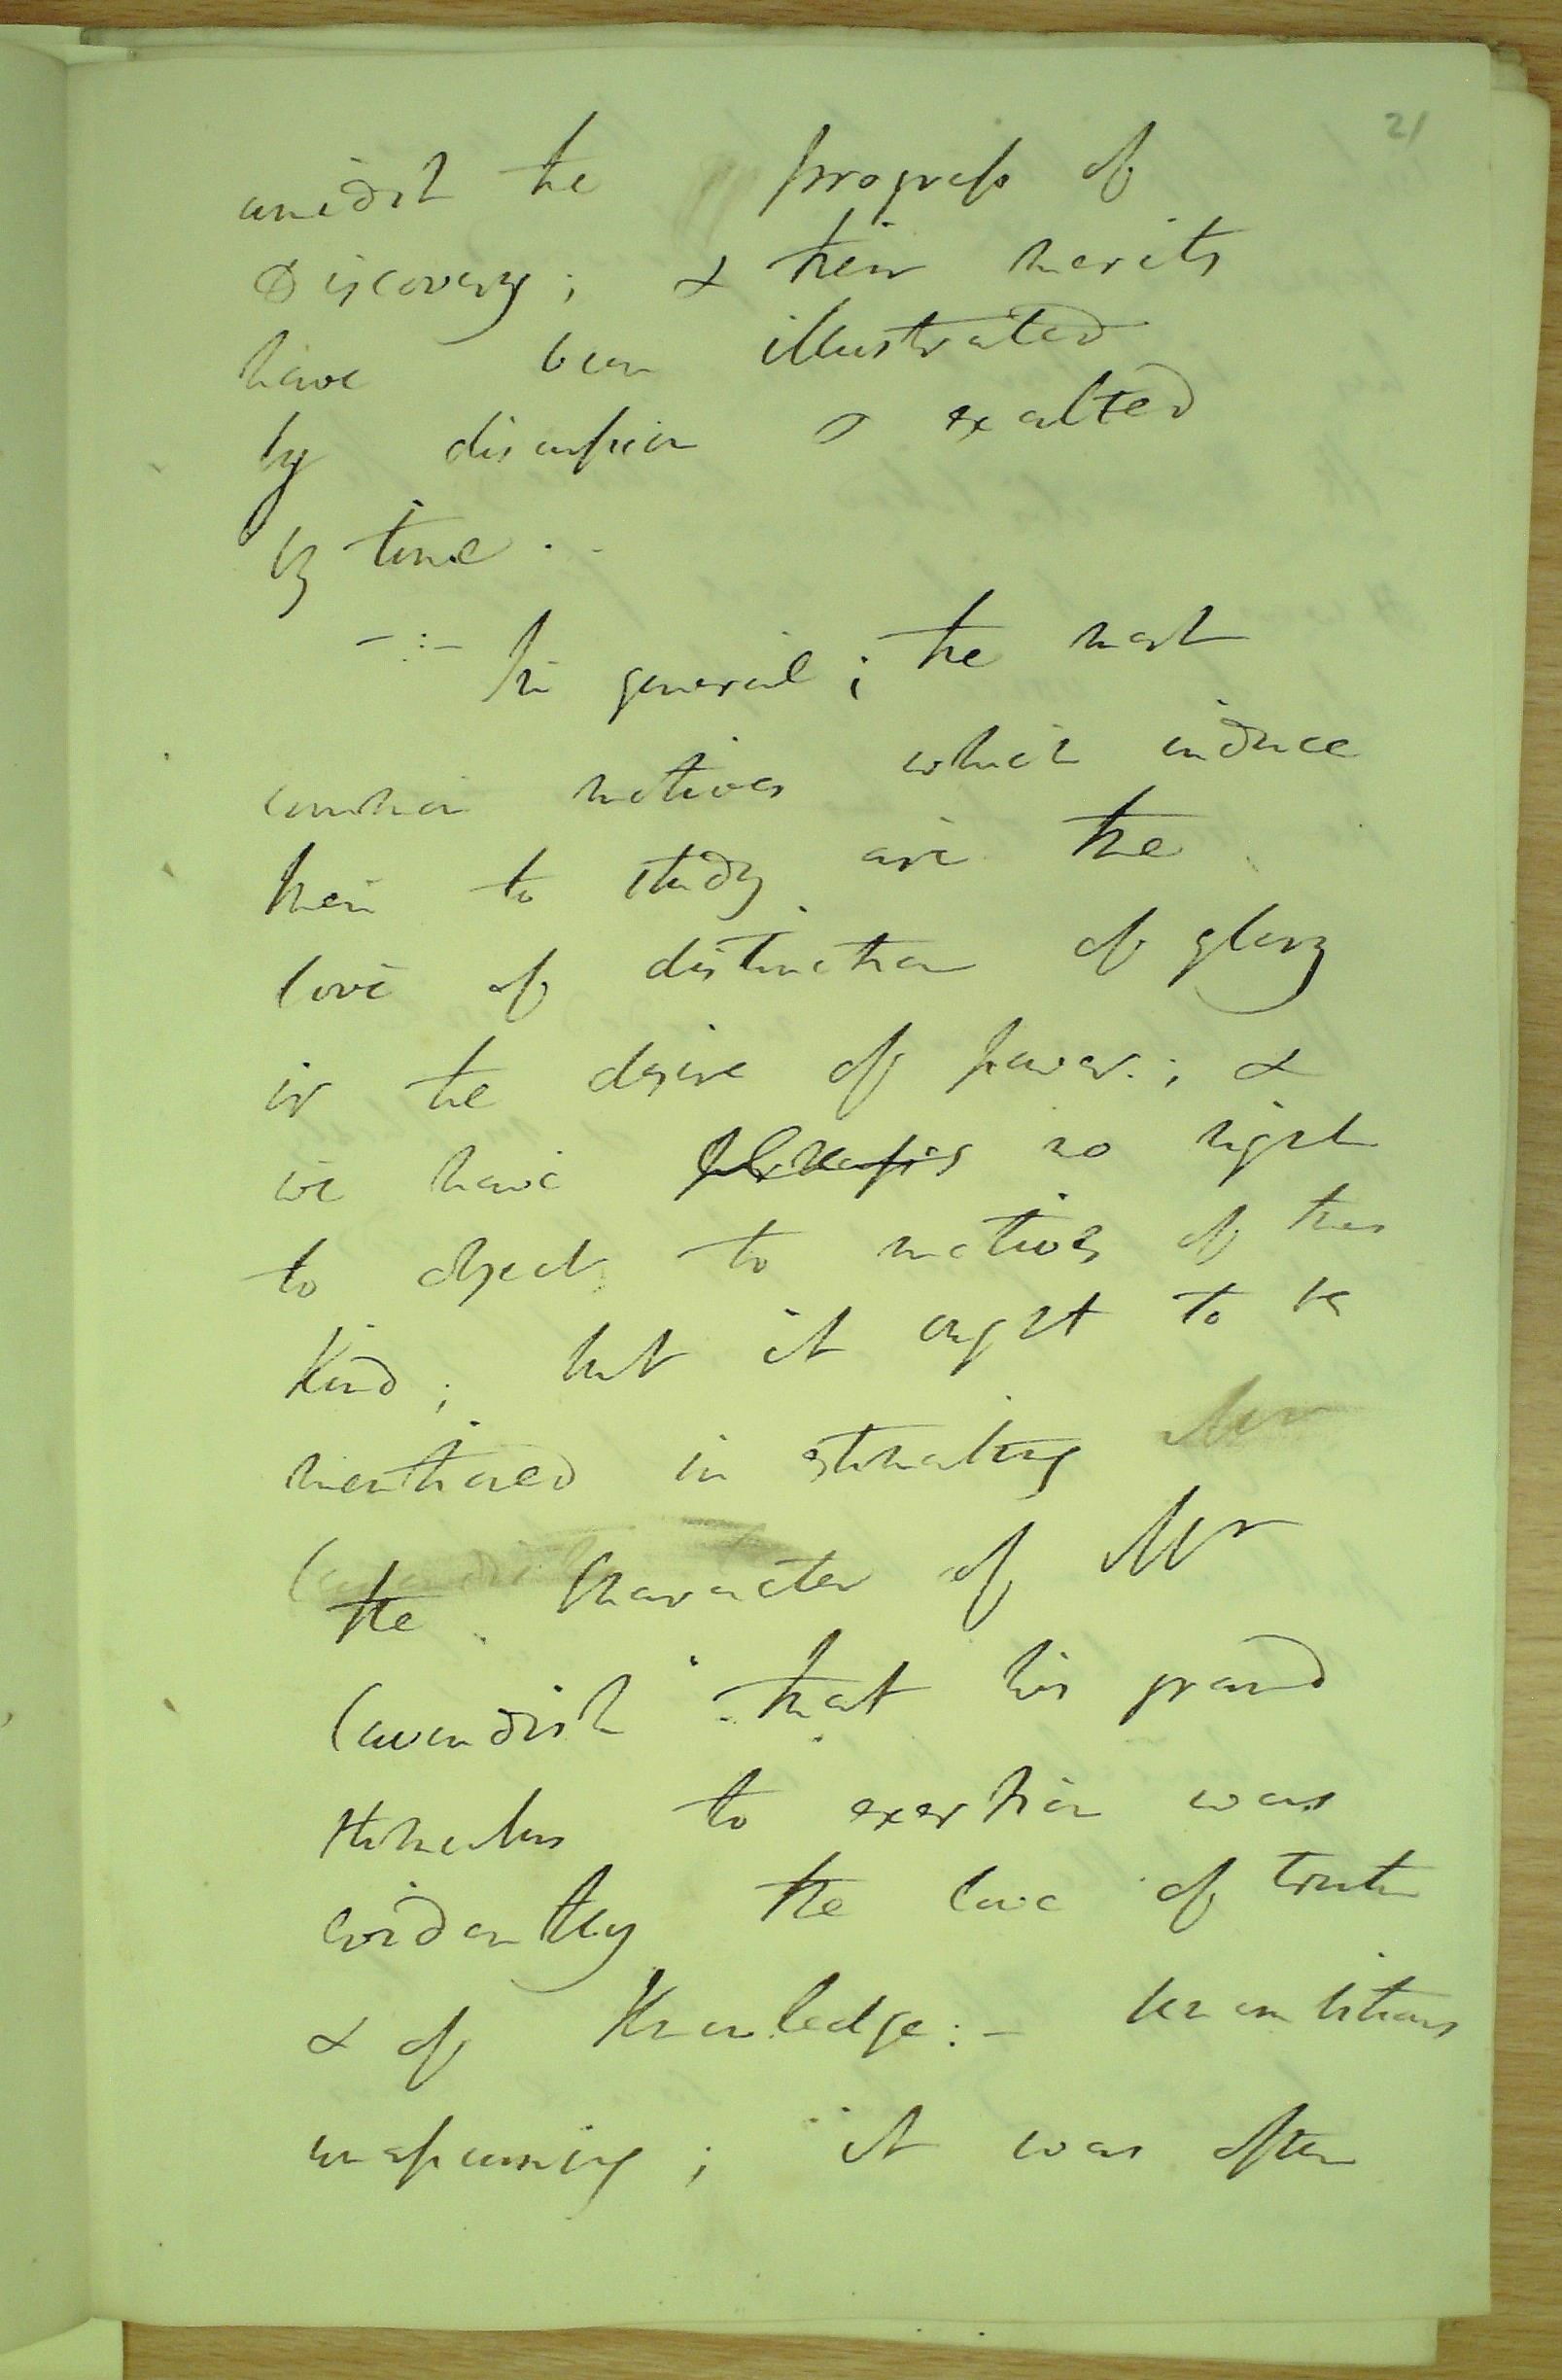 21
amidst the progress of
Discovery; & their merits
have been illustrated
by discussion & exalted
by time.
-:- In general; the most
common motives which induce
men to study are the
love of distinction of glory
or the desire of power; &
we have no right
to object to motives of this
Kind; but it ought to be
mentioned in estimating Mr
Cavendish
the Character of Mr
Cavendish that his grand
stimulus to exertion was
evidently the love of truth
& of Knowledge:- Unambitious
unassuming; it was often